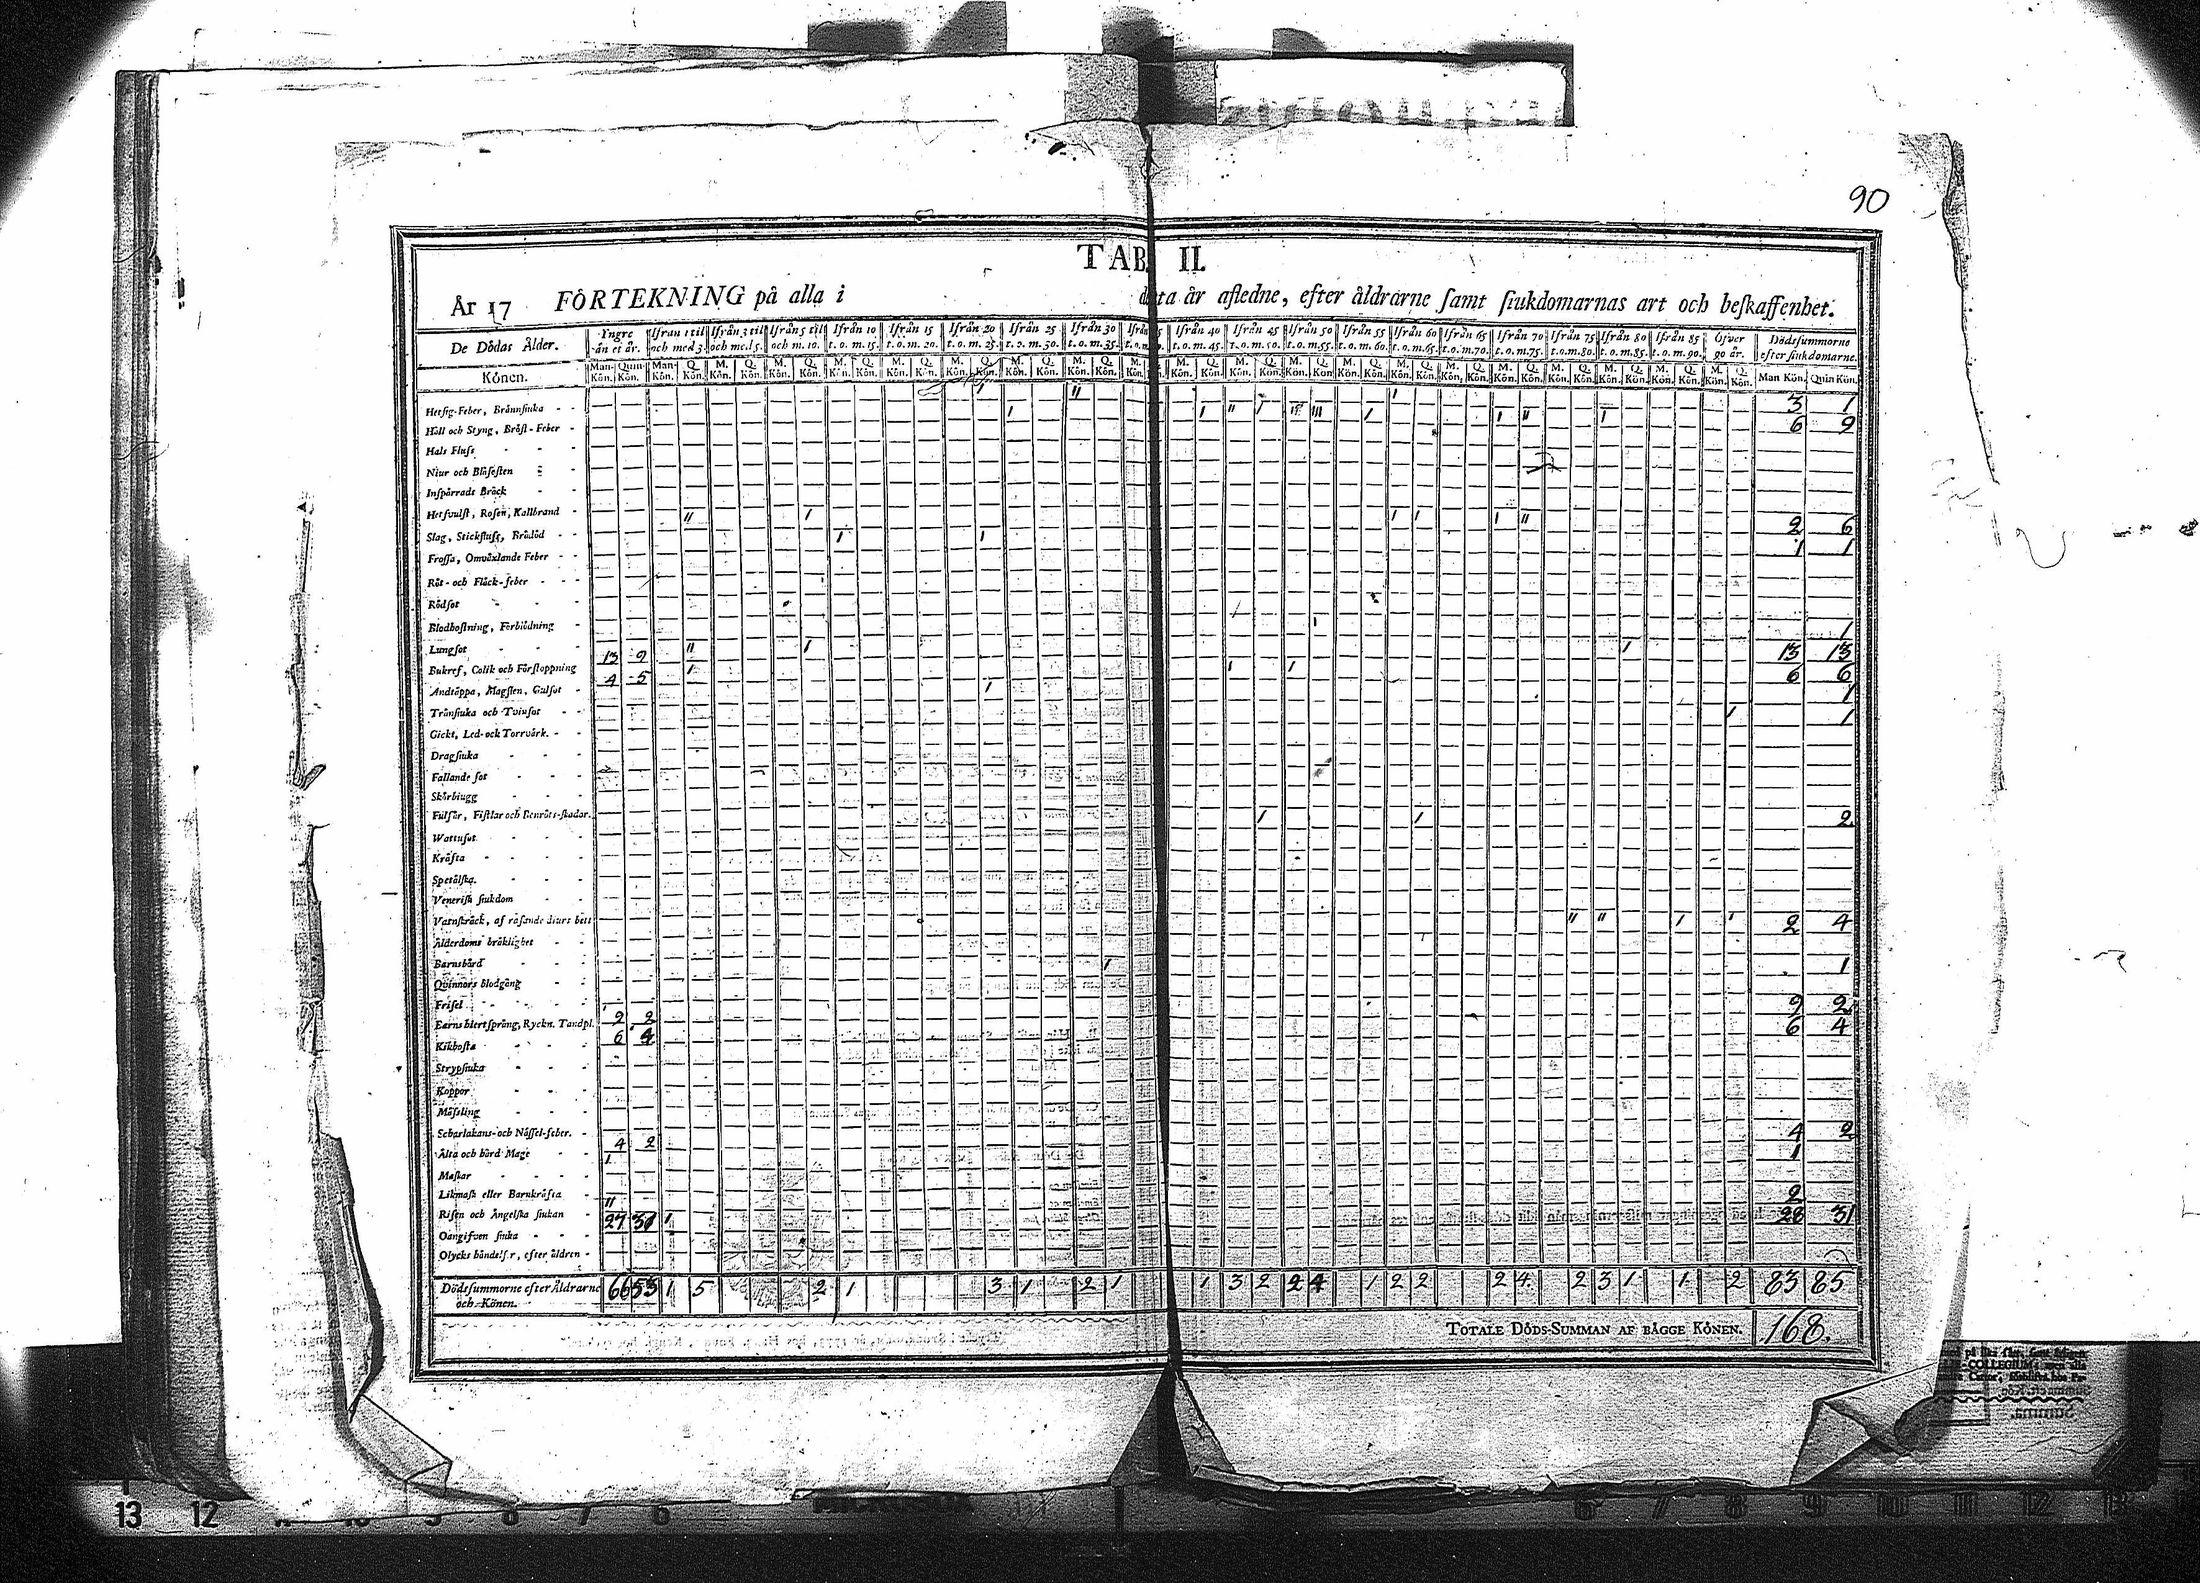 90
TAB. II.
År 17 FÖRTEKNING på alla i detta år afledne, efter åldrarne samt siukdomarnas art och beskaffenhet.
De Dödas Ålder. Yngre än et år. Ifrån 1 til och med 3. Ifrån 3 til och med 5. Ifrån 5 til och m. 10. Ifrån 10 t. o. m. 15. Ifrån 15 t. o. m. 20. Ifrån 20 t. o. m. 25. Ifrån 25 t. o. m. 30. Ifrån 30 t. o. m. 35. Ifrån 40 t. o. m. 45. Ifrån 45 t. o. m. 50. Ifrån 50 t. o. m. 55. Ifrån 55 t. o. m. 60. Ifrån 60 t. o. m. 65. Ifrån 65 t. o. m. 70. Ifrån 70 t. o. m. 75. Ifrån 75 t. o. m. 80. Ifrån 80 t. o. m. 85. Ifrån 85 t. o. m. 90. Öfver 90 år. Dödssummorne efter siukdomarne.
Könen. Man-Kön. Quin-Kön. Man-Kön. Q. Kön. M. Kön. Q. Kön. M. Kön. Q. Kön. Man Kön. Quin Kön.
Hetsig-Feber, Brännsiuka 1 11 1 3 1
Håll och Styng, Bröst-Feber 1 1 11 1 111 1 1 11 1 6 9
Hals Fluss
Niur och Blåsesten
Inspärradt Bråck
Hetsvulst, Rosen, Kallbrand 11 1 1 1 1 11 2 6
Slag, Stickfluss, Brådöd 1 1 1 1
Frossa, Omväxlande Feber
Röt- och Fläck-feber
Rödsot
Blodhostning, Förblödning 1 1
Lungsot 13 9 11 1 1 13 13
Bukref, Colik och Förstoppning 4 5 1 1 1 6 6
Andtäppa, Magsten, Gulsot 1 1
Trånsiuka och Tvinsot 1 1
Gickt, Led- och Torrvärk.
Dragsiuka
Fallande sot
Skörbiugg
Fulsår, Fistlar och Benröts-skador. 1 1 2
Wattusot
Kräfta
Spetälska.
Venerisk siukdom
Vatnskräck, af rasande diurs bett 11 11 1 1 2 4
Ålderdoms bräklighet
Barnsbörd 1 1
Qvinnors blodgång
Frisel 9 2 9 2
Barns hiertsprång, Ryckn. Tandpl. 6 4 6 4
Kikhosta
Strypsiuka
Koppor
Mässling
Scharlakans- och Nässel-feber. 4 2 4 2
Älta och hård Mage 1 1
Maskar
Likmask eller Barnkräfta 11 2
Risen och Ängelska siukan 27 31 1 28 31
Oangifven siuka
Olycks händelser, efter åldren
Dödssummorne efter Åldrarne och Könen. 66 53 1 5 2 1 3 1 2 1 1 3 2 2 4 1 2 2 2 4. 2 3 1 1 2 83 85
TOTALE DÖDS-SUMMAN AF BÄGGE KÖNEN. 168.
13 12 6 7 8 9 10 11 12 13